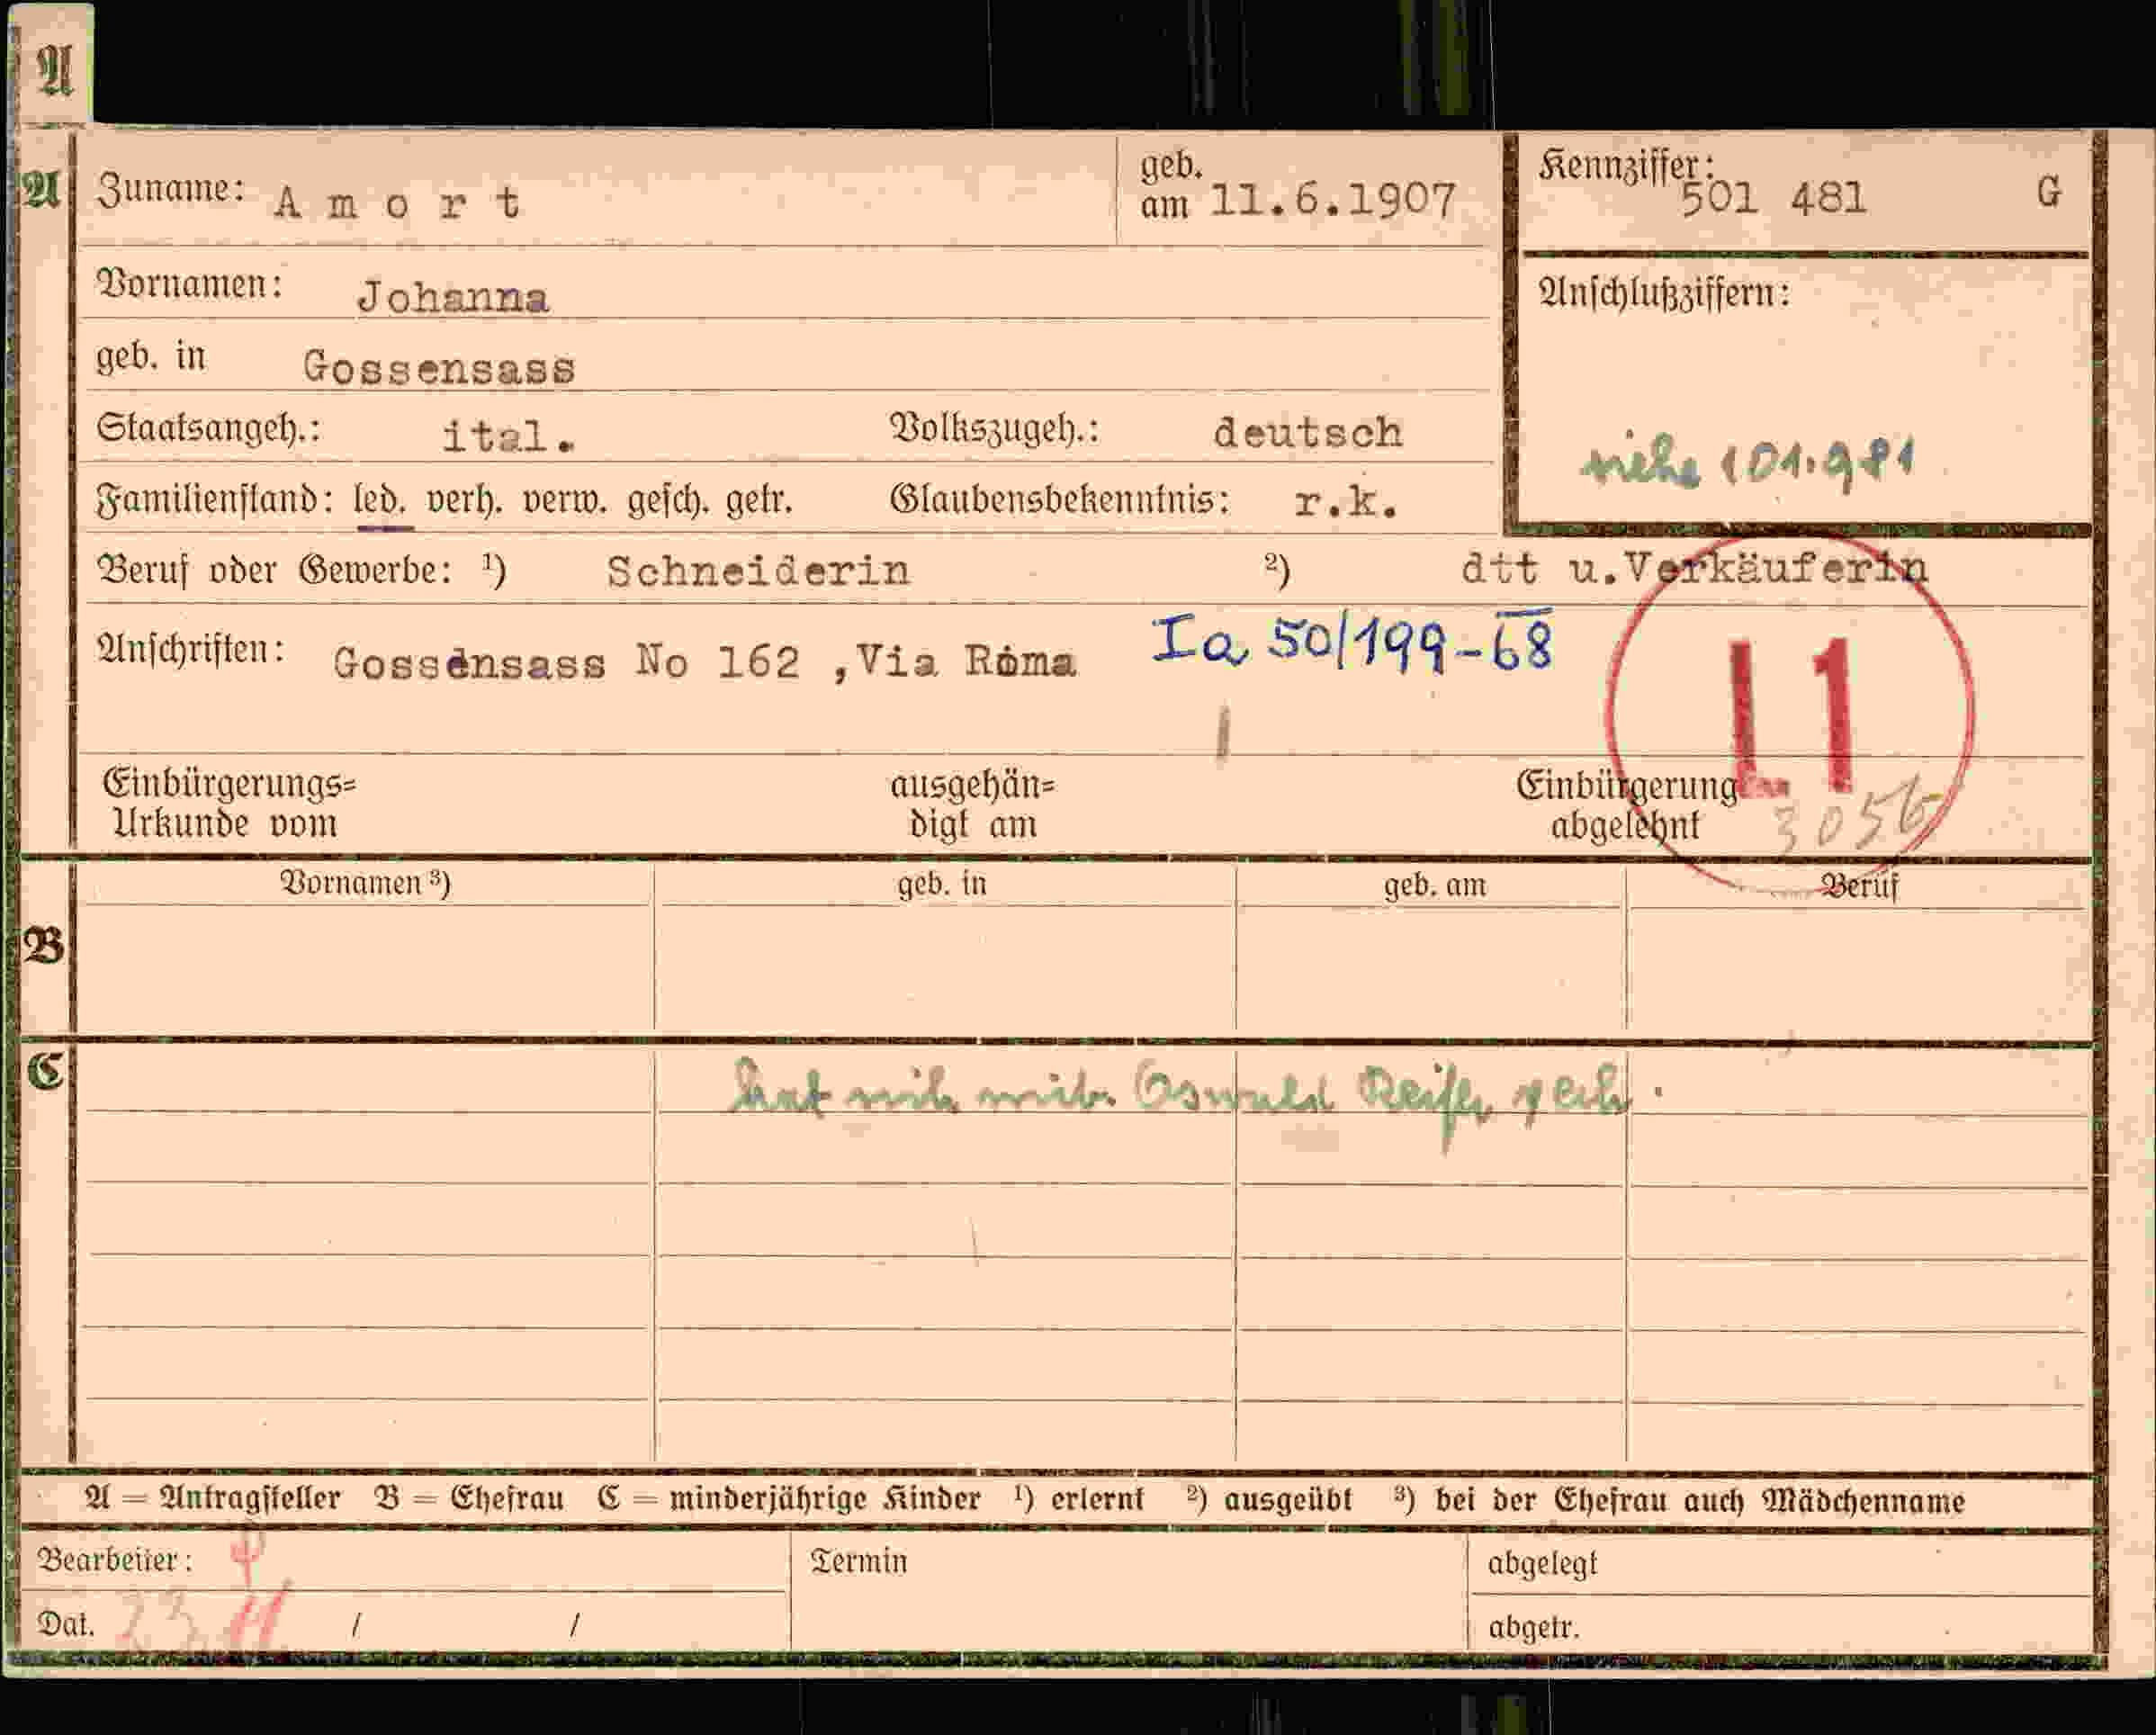 A
A
Zuname: Amort
geb. am 11.6.1907
Kennziffer: 501 481 G
Vornamen: Johanna
Anschlußziffern:
geb. in Gossensass
Staatsangeh.: ital. Volkszugeh.: deutsch
siehe 101.981
Familienstand: led. verh. verw. gesch. getr. Glaubensbekenntnis: r.k.
Beruf oder Gewerbe: ¹) Schneiderin ²) dtt u.Verkäuferin
Anschriften: Gossensass No 162 ,Via Roma Ia 50/199-68
L1
Einbürgerungs= ausgehän= Einbürgerung
Urkunde vom digt am abgelehnt 3056
Vornamen ³) geb. in geb. am Beruf
B
C
hat sich mit Oswald verh.
A = Antragsteller B = Ehefrau C = minderjährige Kinder ¹) erlernt ²) ausgeübt ³) bei der Ehefrau auch Mädchenname
Bearbeiter: Termin abgelegt
Dat. / / abgetr.